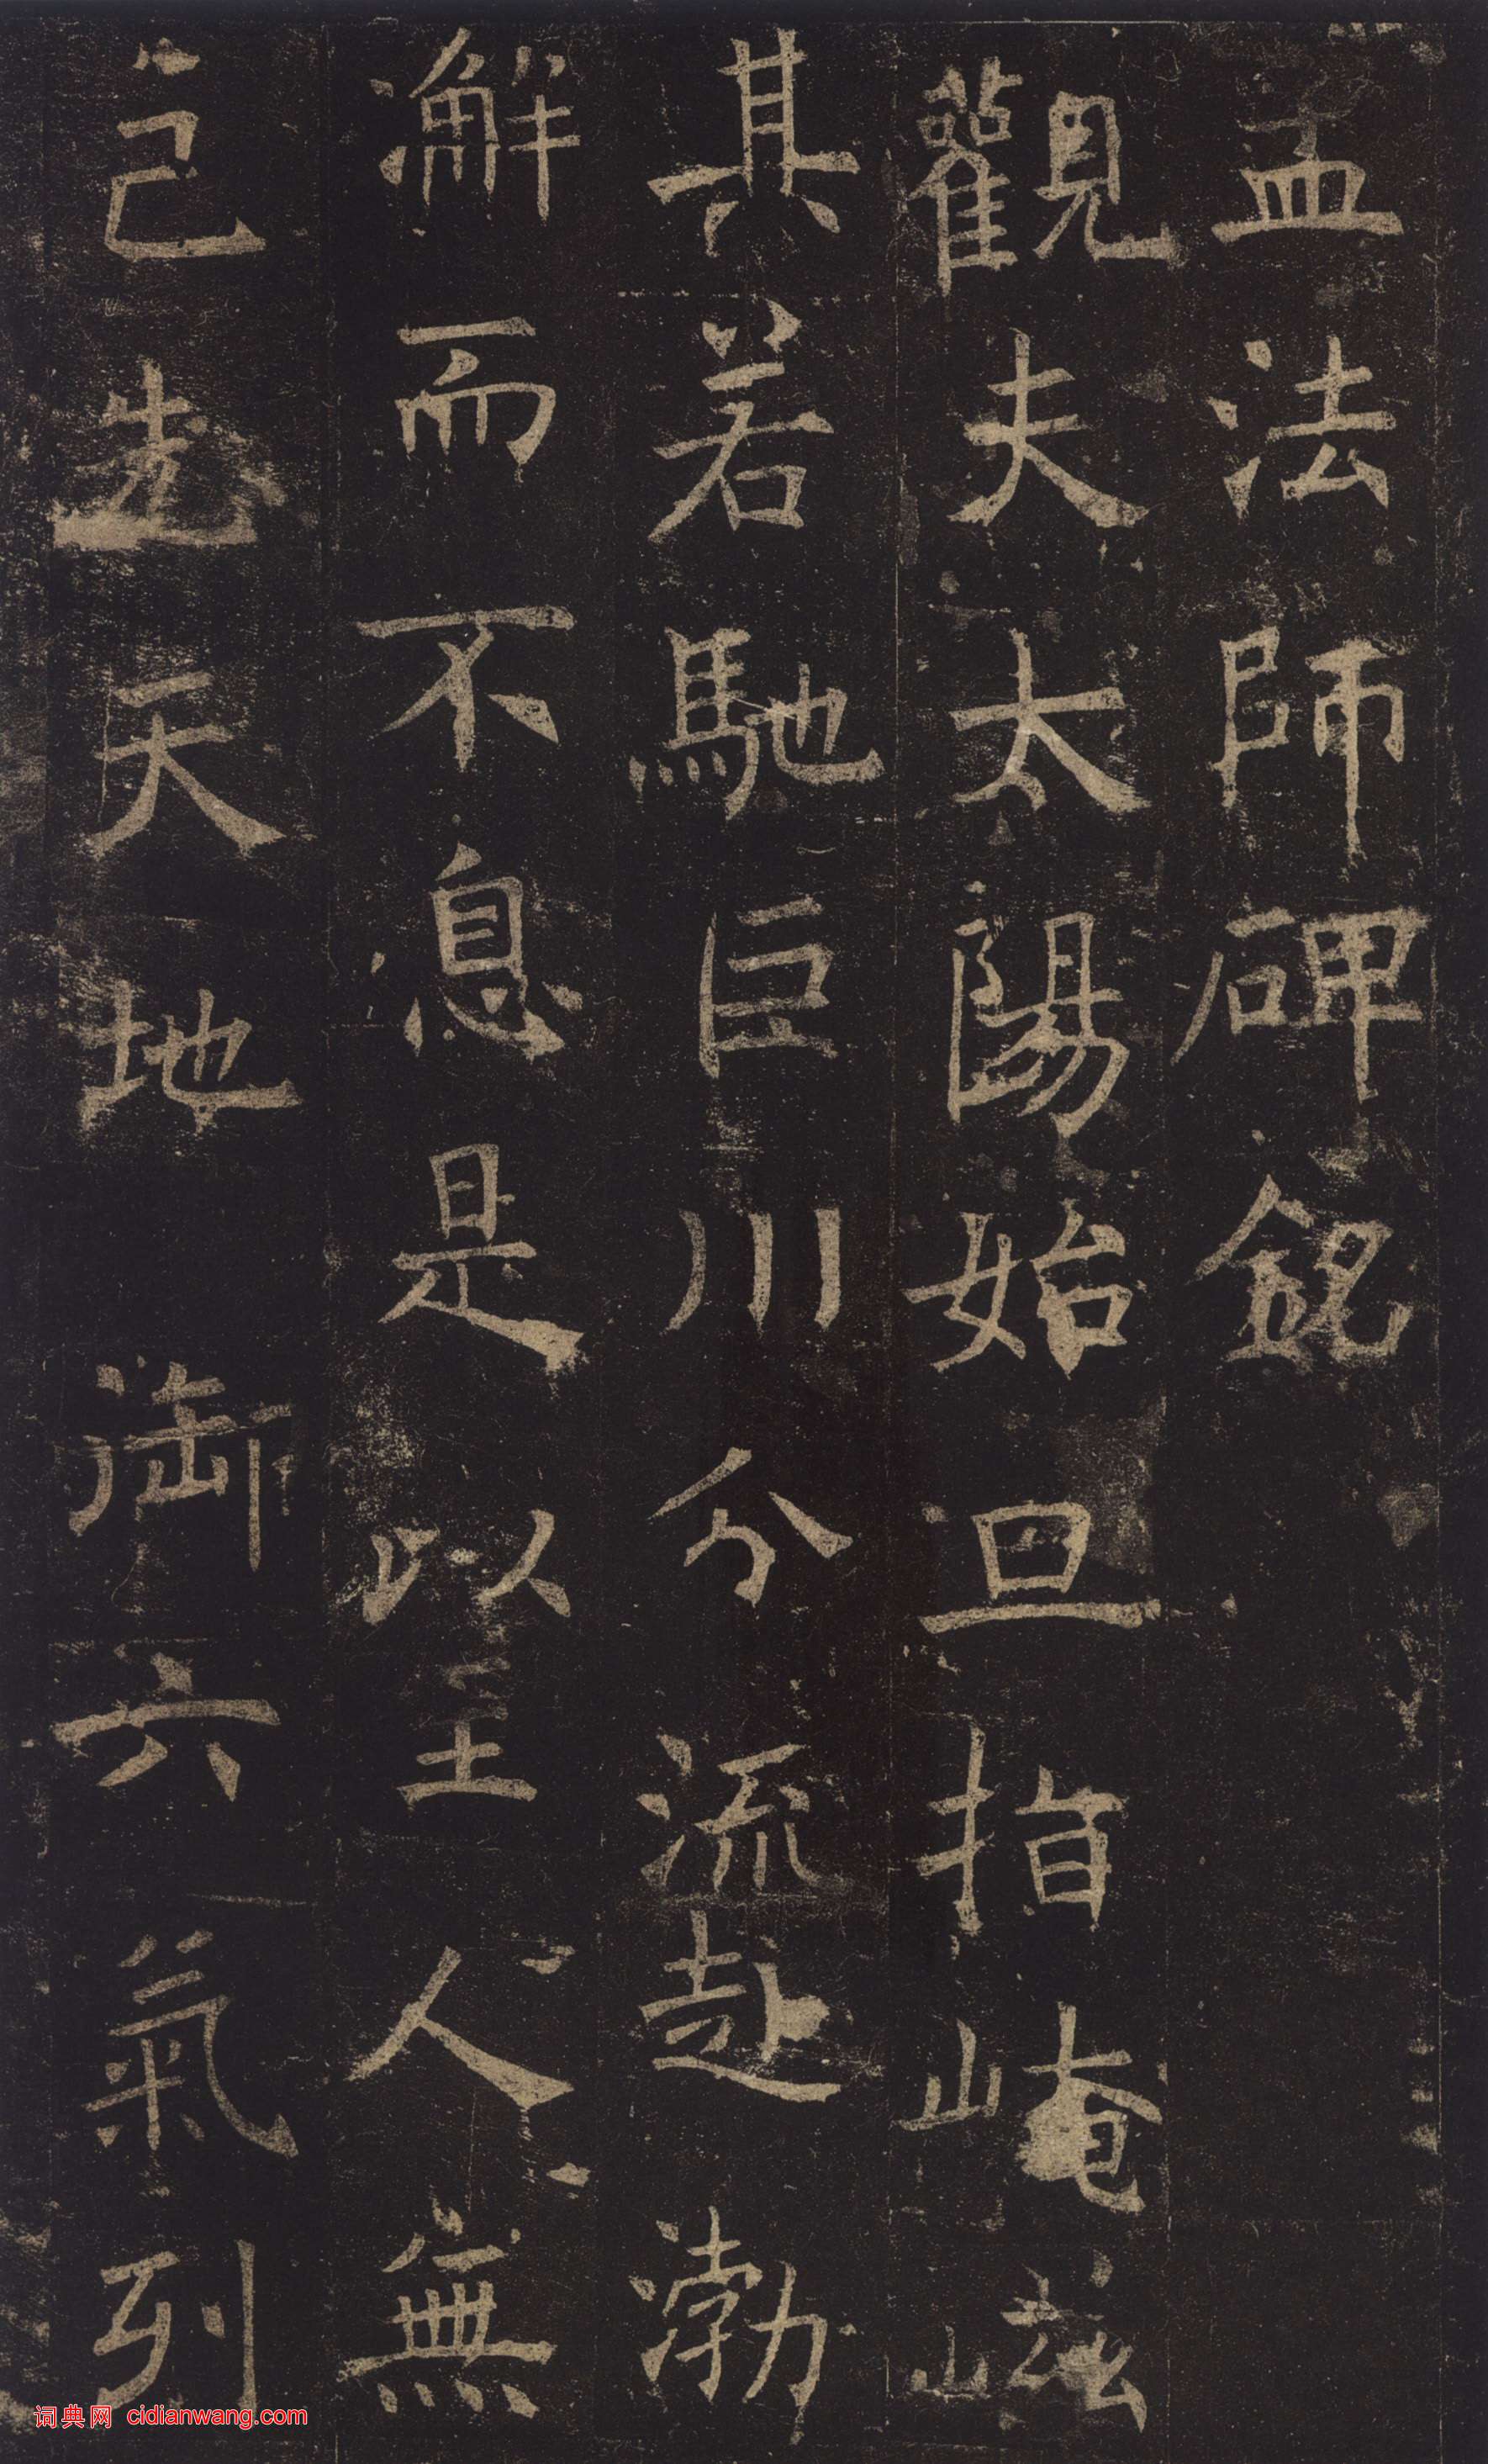 孟法師碑銘
觀夫太陽始旦指崦嵫
其若馳巨川分流赴渤
澥而不息是以至人無
己先天地御六氣列
词典网 cidianwang.com